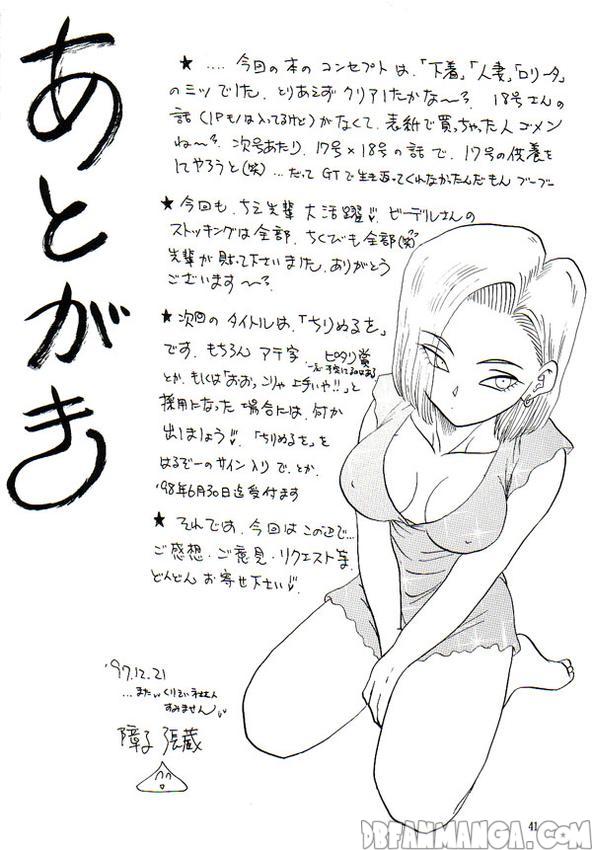 あとがき
★ .... 今回の本のコンセプトは、「下着」「人妻」「ロリータ」
の三ツでした。とりあえずクリアしたかな～?。18号さんの
話(1Pモノは入ってるけど)がなくて、表紙で買っちゃった人ゴメン
ね～?。次号あたり、17号×18号の話で、17号の供養を
してやろうと(笑)...だってGTで生き返ってくれなかったんだもんブーブー
★ 今回も、ちえ先輩 大活躍。ビーデルさんの
ストッキングは全部、ちくびも全部(笑)
先輩が貼って下さいました。ありがとう
ございます～?。
★ 次回のタイトルは、「ちりぬるを」
です。もちろん アテ字、ピタリ賞
とか、もしくは「おおっこりゃ上手いや!!」と
採用になった場合には、何か
出しましょう。「ちりぬるを」を
はるぞーのサイン入りで、とか。
'98年6月30日迄受付ます
★ それでは、今回はこの辺で...
ご感想・ご意見・リクエスト等、
どんどんお寄せ下さい。
'97.12.21
...また
すみません
障子 張蔵
41
DBFANMANGA.COM